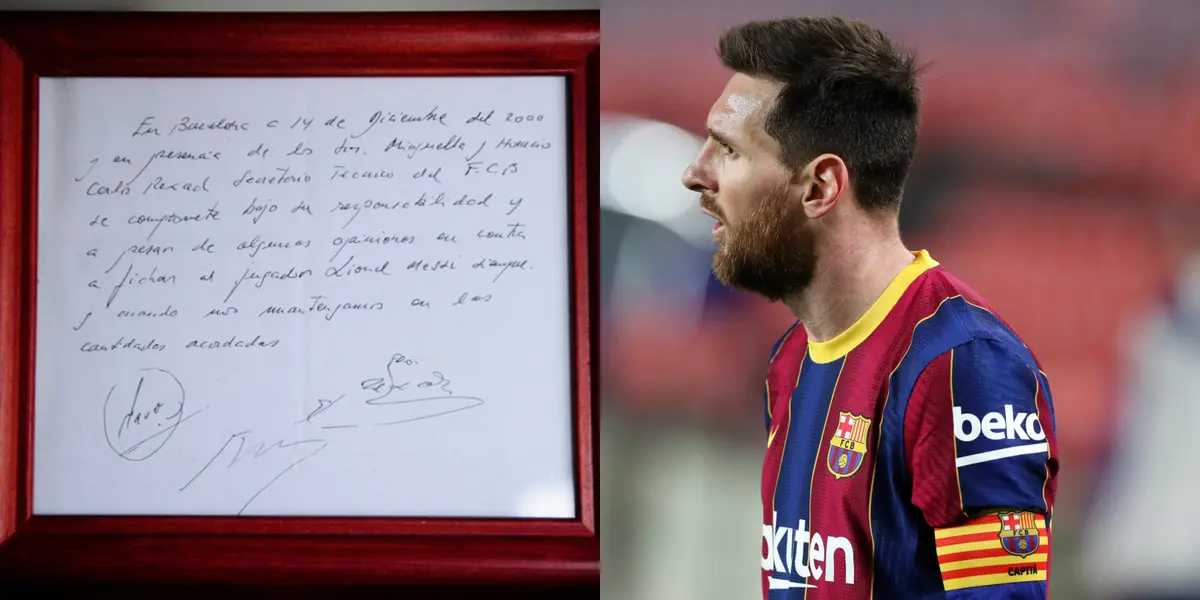 En Barcelona a 14 de Diciembre del 2000
y en presencia de los Sres. Minguella y Horacio
Carlos Rexach Secretario Técnico del F.C.B
se compromete bajo su responsabilidad y
a pesar de algunas opiniones en contra
a fichar al jugador Lionel Messi siempre
y cuando nos mantengamos en las
cantidades acordadas
FCB
beko
Rakuten
FCB
CAPITÀ